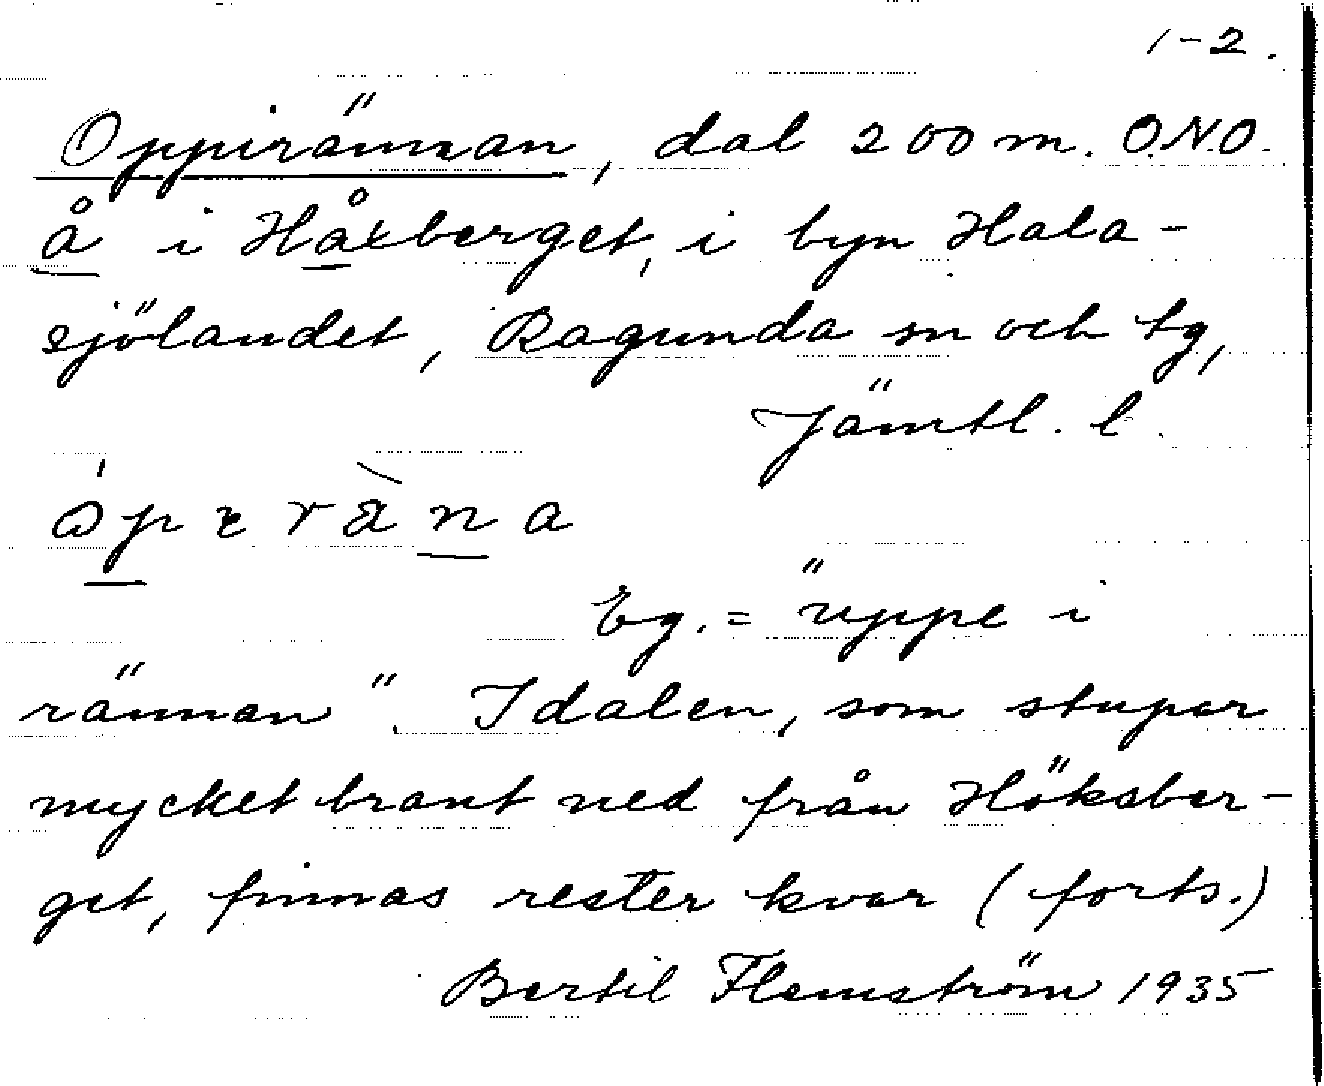 1-2.
Oppirännan, dal 200 m. O.N.O.
å i Håxberget, i byn Hala-
sjölandet, Ragunda sn och tg,
Jämtl. l.
Eg. = "uppe i
rännan". I dalen, som stupar
mycket brant ned från Höksber-
get, finnas rester kvar (forts.)
Bertil Flemström 1935